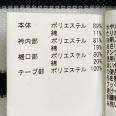 本体 ポリエステル 89%
綿 11%
衿内部 ポリエステル 81%
綿 19%
裾口部 ポリエステル 80%
綿 20%
テープ部 ポリエステル 100%